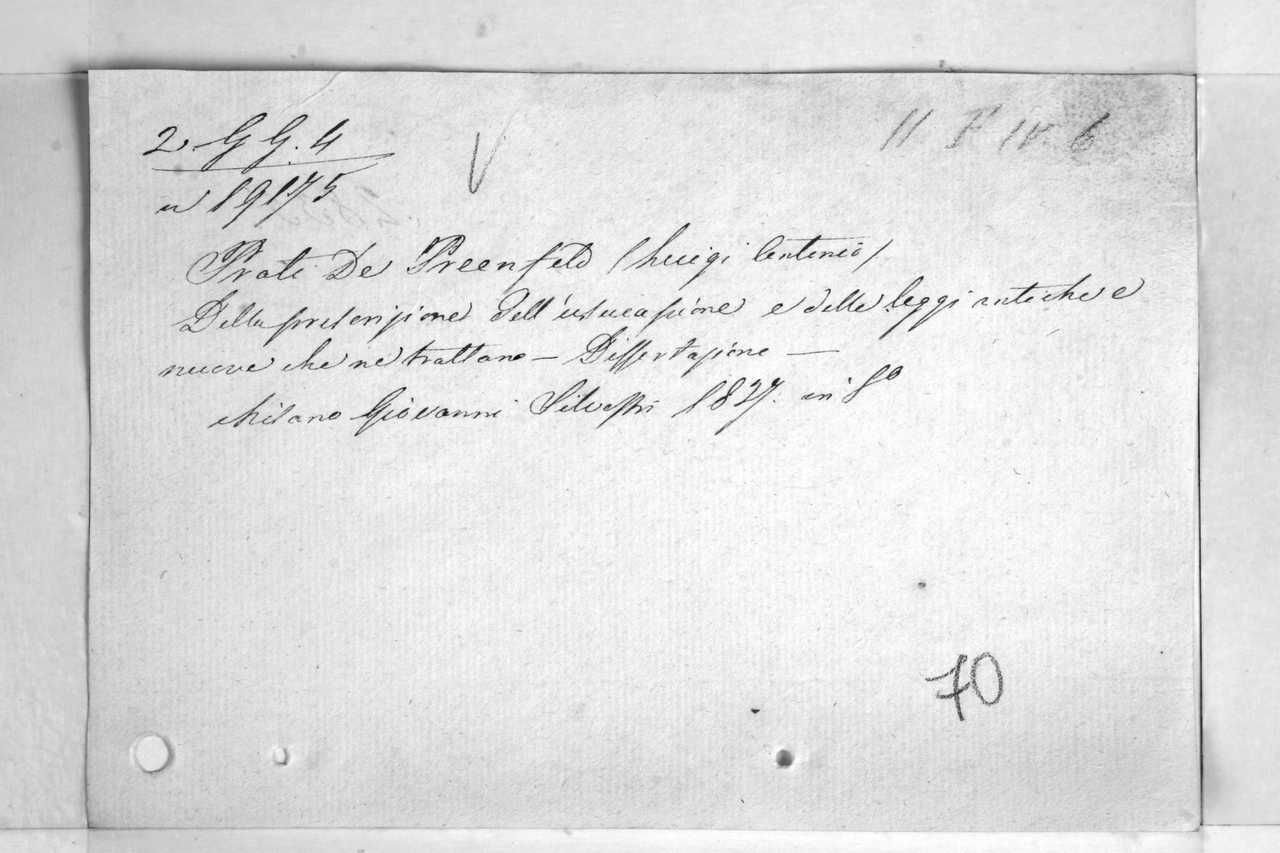 2 G G. 4
V
II F IV. 6
n 19175
Prati De Preenfeld (Luigi Antonio)
Della prescrizione dell'usucapione e delle leggi antiche e
nuove che ne trattano — Dissertazione —
Milano Giovanni Silvestri 1827. in 8º
70